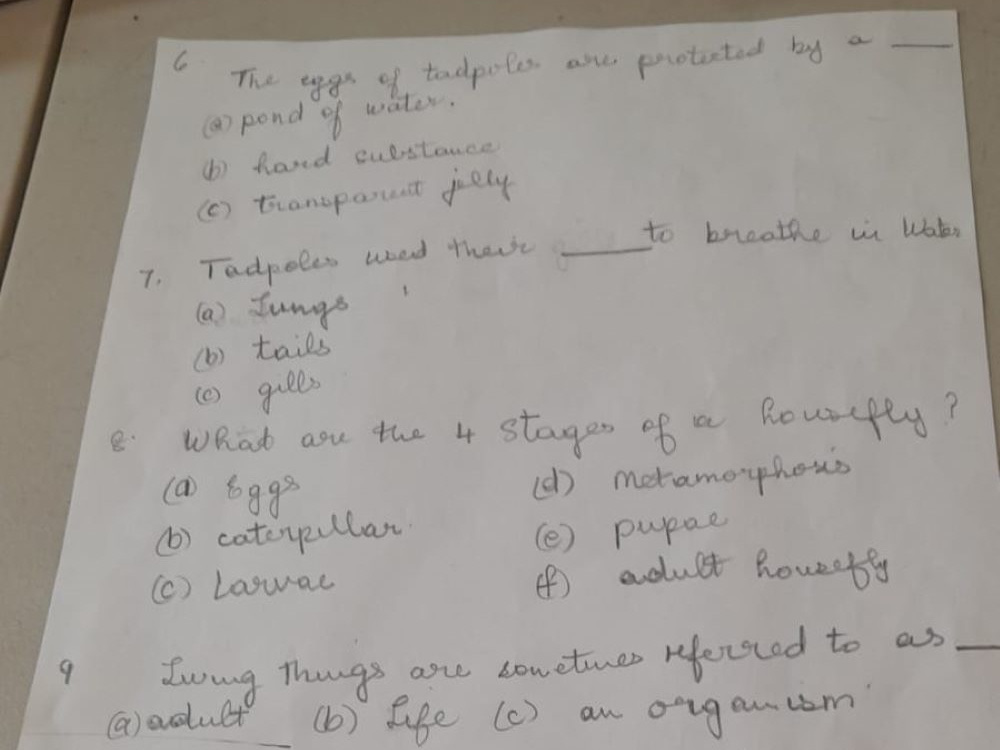 6. The eggs of tadpoles are protected by a ___
(a) pond of water.
(b) hard substance
(c) transparent jelly
7. Tadpoles used their ___ to breathe in Water
(a) Lungs
(b) tails
(c) gills
8. What are the 4 stages of a housefly?
(a) Eggs (d) Metamorphosis
(b) caterpillar. (e) pupae
(c) Larvae (f) adult housefly
9 Living things are sometimes referred to as ___
(a) adult (b) Life (c) an organism